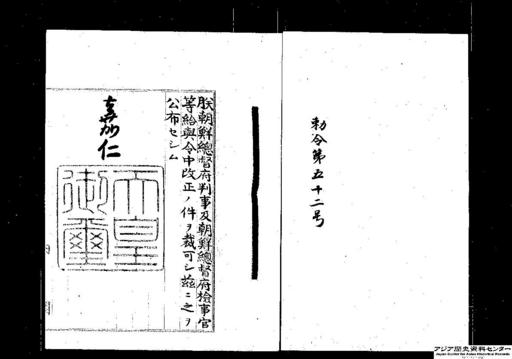 勅令第五十二号
朕朝鮮總督府判事及朝鮮總督府檢事官
等給與令中改正ノ件ヲ裁可シ茲ニ之ヲ
公布セシム
嘉仁
天皇
御璽
アジア歴史資料センター
Japan Center for Asian Historical Records